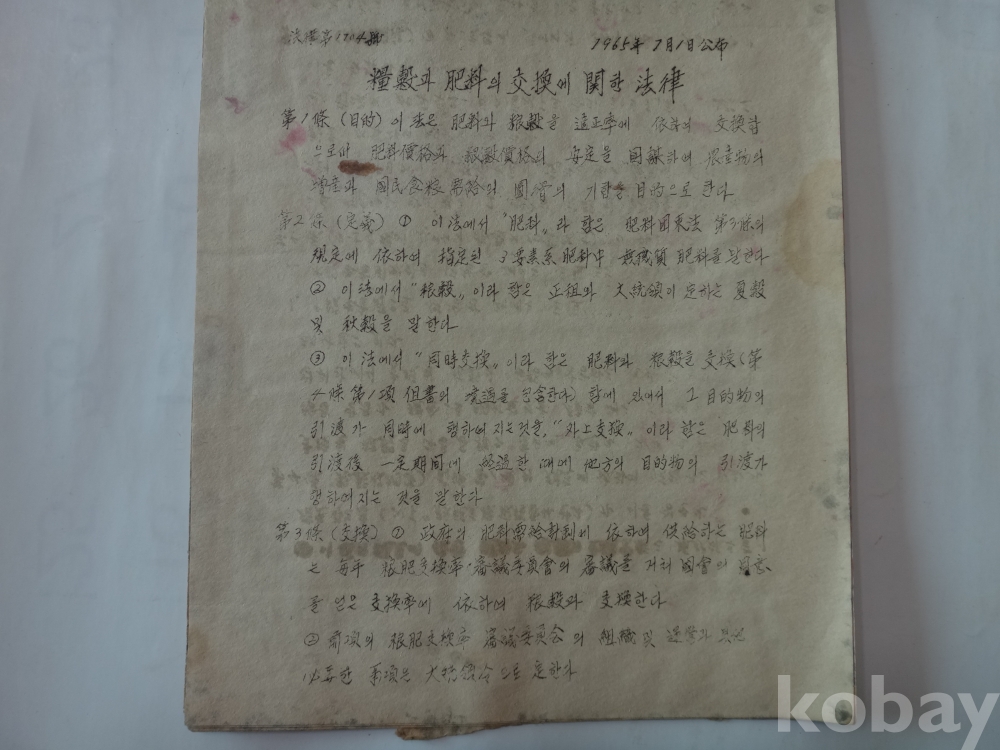 法律第1704號
1965年 7月1日 公布
糧穀과 肥料의 交換에 関한 法律
第1條 (目的) 이 法은 肥料와 粮穀을 適正率에 依하여 交換함
으로써 肥料價格과 粮穀價格의 安定을 圖謀하여 農産物의
增産과 国民食粮 需給의 圓滑의 기함을 目的으로 한다
第2條 (定義) ① 이 法에서 "肥料」라 함은 肥料団束法 第3條의
規定에 依하여 指定된 3要素系 肥料中 無機質 肥料를 말한다
② 이 法에서 "粮穀」이라 함은 正租와 大統領이 定하는 夏穀
및 秋穀을 말한다
③ 이 法에서 "同時交換」이라 함은 肥料와 粮穀을 交換(第
4條 第1項 但書의 境遇를 包含한다) 함에 있어서 그 目的物의
引渡가 同時에 행하여지는것을, "外上交換」이라 함은 肥料의
引渡後 一定期間에 経過한 때에 他方의 目的物의 引渡가
행하여지는 것을 말한다
第3條 (交換) ① 政府의 肥料需給計劃에 依하여 供給하는 肥料
는 每年 粮肥交換率審議委員會의 審議를 거쳐 國會의 同意
를 얻은 交換率에 依하여 粮穀과 交換한다
② 前項의 粮肥交換率 審議委員会의 組織 및 運營과 其他
必要한 事項은 大統領令으로 定한다
kobay